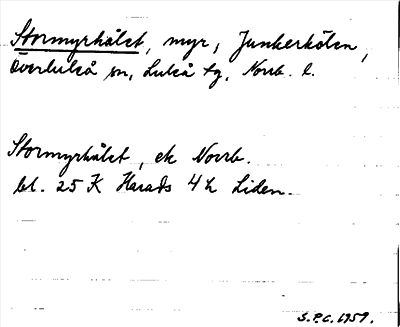 Stormyrhålet, myr, Junkerkölen,
Överluleå sn, Luleå tg, Norrb. l.
Stormyrhålet, ek Norrb.
bl. 25 K Harads 4 h Liden.
S.P.C. 1959.